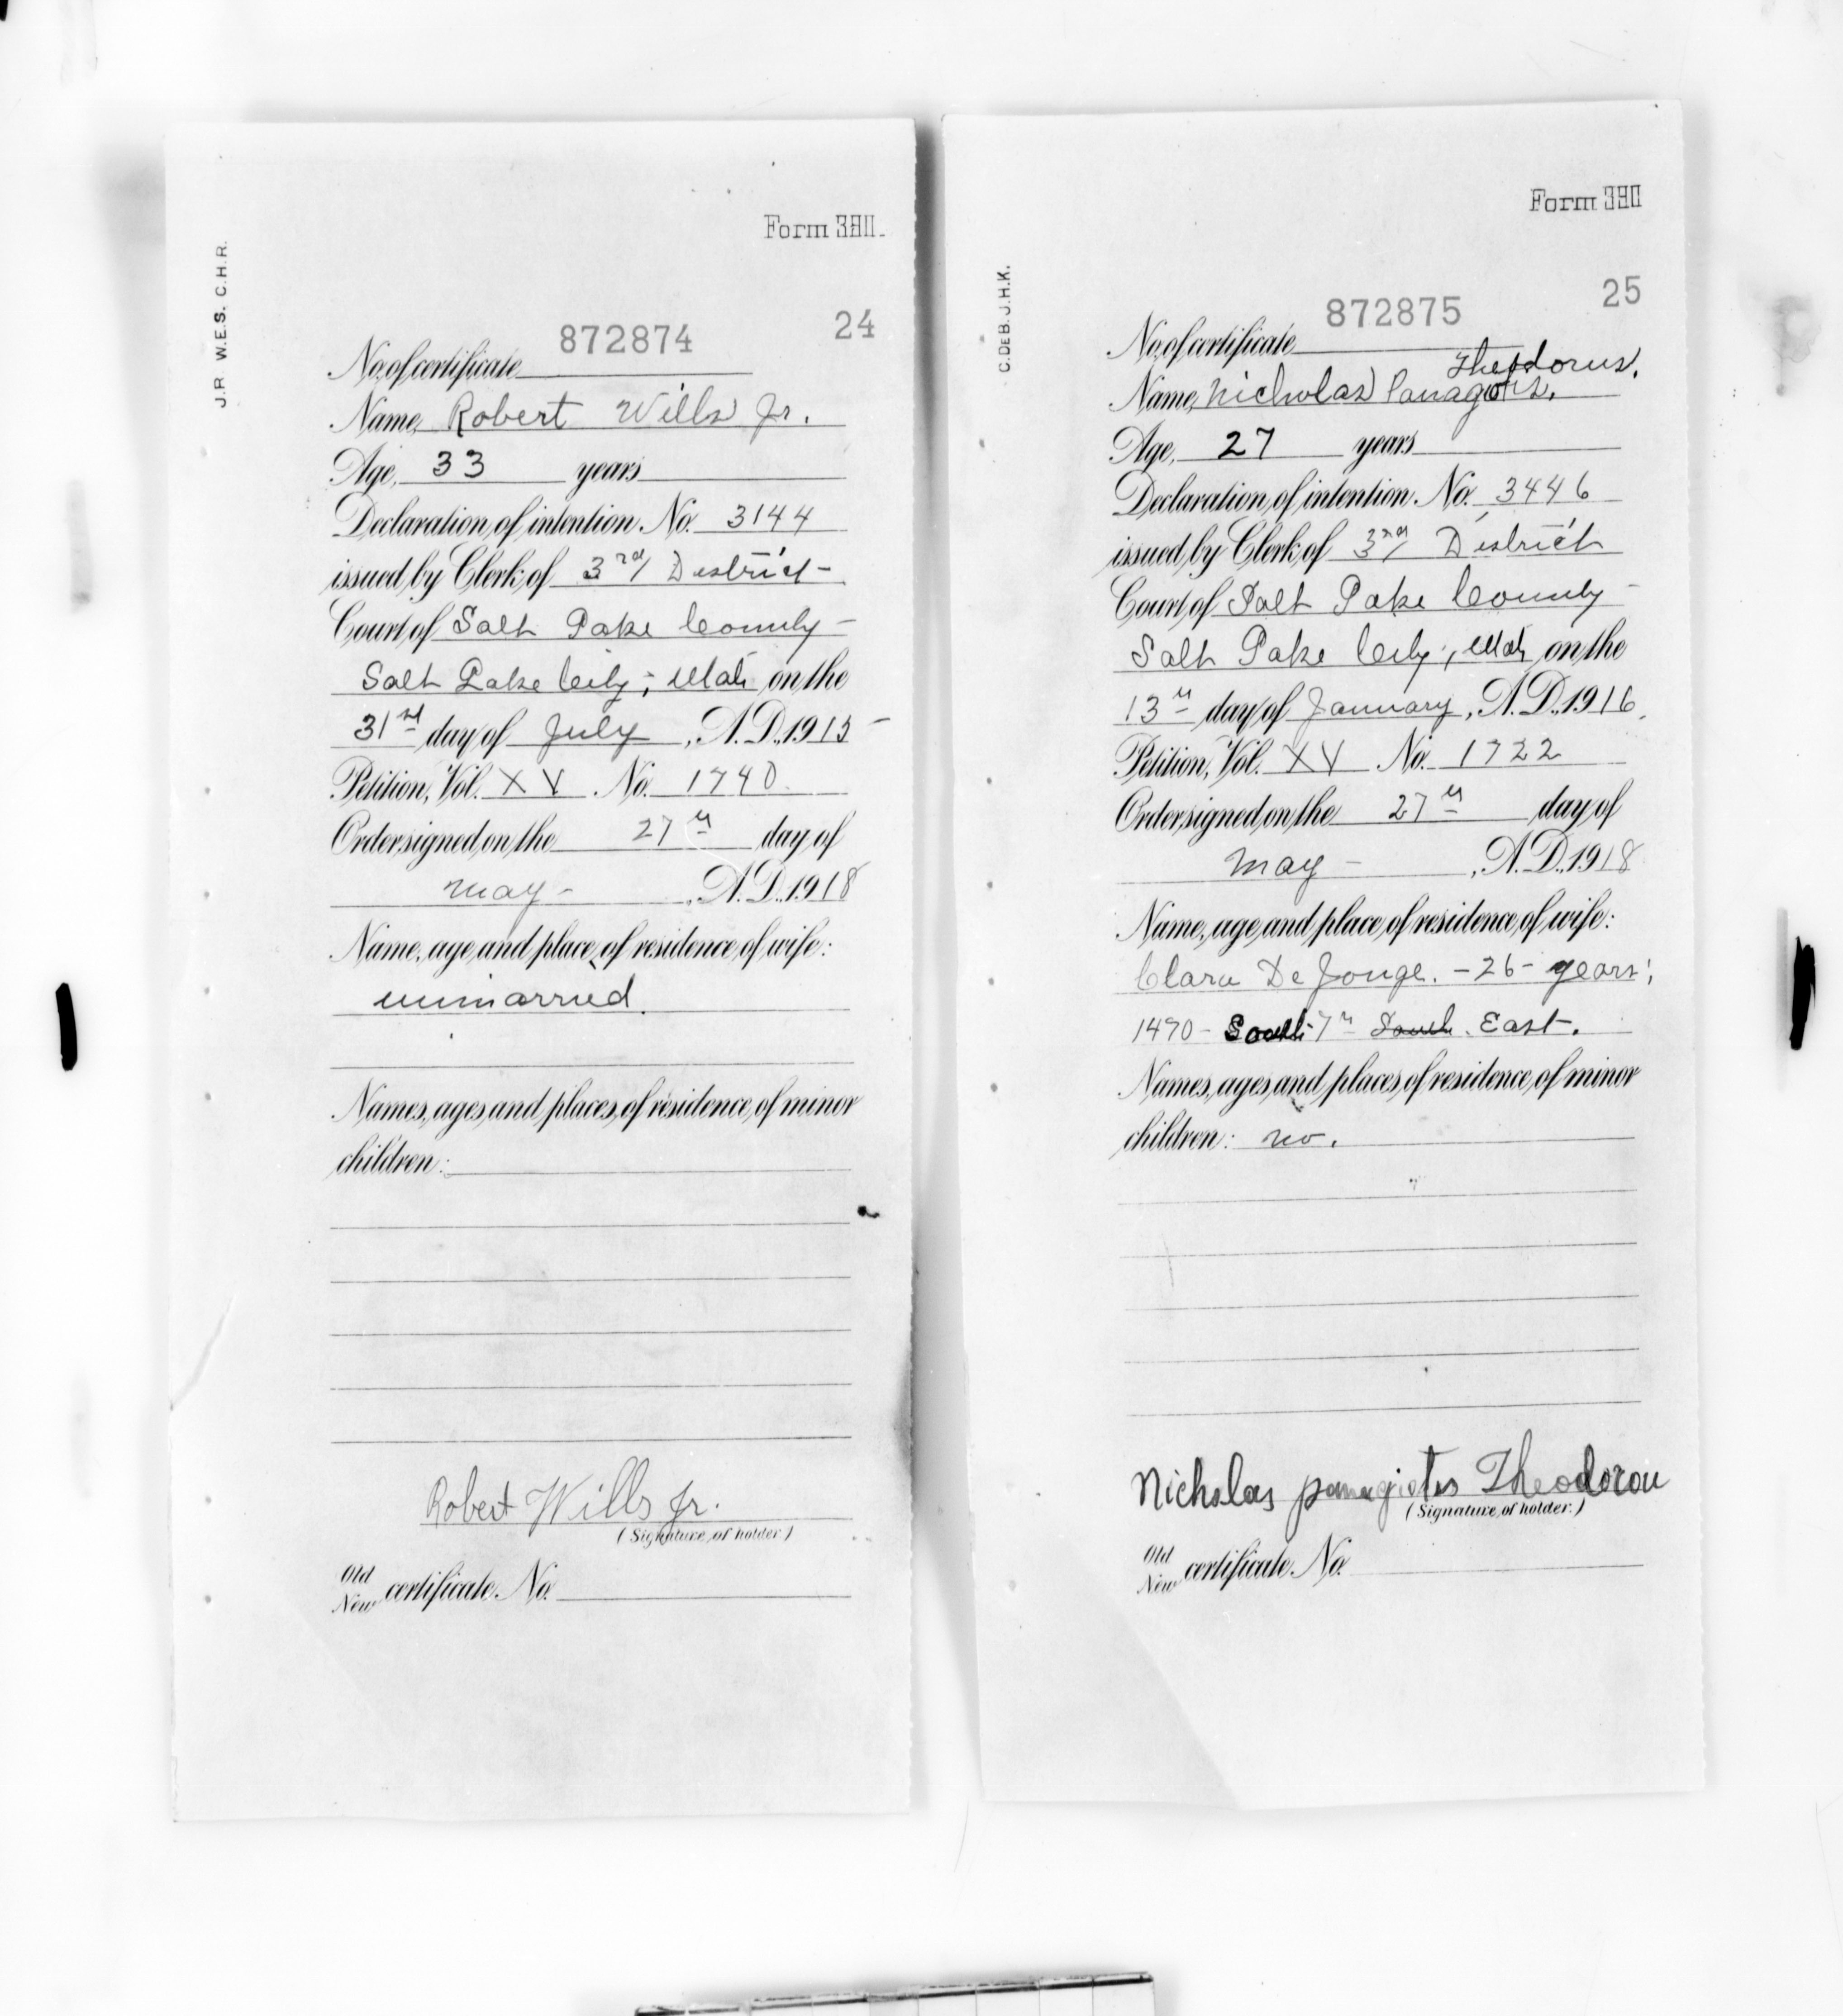 J.R. W.E.S. C.H.R.
Form 380.
872874 24
No. of certificate
Name, Robert Wills Jr.
Age, 33 years
Declaration of intention No. 3144
issued by Clerk of 3rd District -
Court of Salt Lake County -
Salt Lake City; Utah on the
31st day of July , A.D. 1915 -
Petition, Vol. XV No. 1740
Order signed on the 27th day of
May - , A.D. 1918
Name, age and place of residence of wife:
unmarried.
Names, ages and places of residence of minor
children:
Robert Wills Jr.
(Signature of holder.)
Old
New certificate No.
C.DEB. J.H.K.
Form 380
872875 25
No. of certificate
Theodorus.
Name, Nicholas Panagotis.
Age, 27 years
Declaration of intention No. 3446
issued by Clerk of 3rd District
Court of Salt Lake County -
Salt Lake City, Utah on the
13th day of January, A.D. 1916.
Petition, Vol. XV No. 1722
Order signed on the 27th day of
May - , A.D. 1918
Name, age and place of residence of wife:
Clara De Jonge. - 26 - years;
1470 - South 7th South East.
Names, ages and places of residence of minor
children: no.
Nicholas panagiotes Theodorou
(Signature of holder.)
Old
New certificate No.